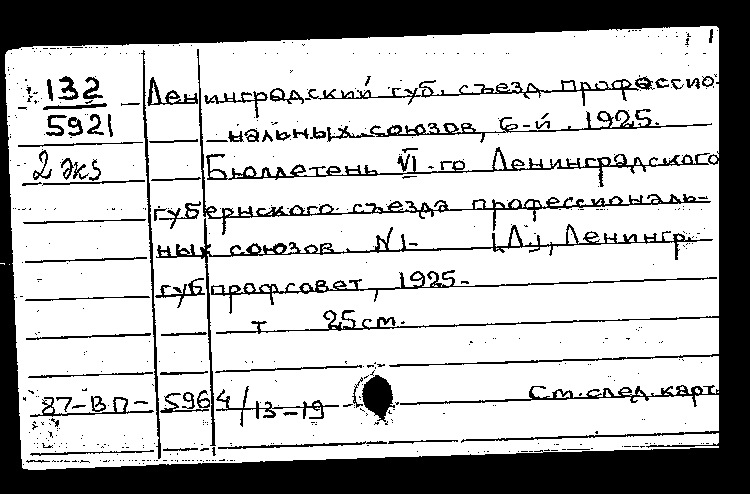 1
132 Ленинградский губ. съезд профессио-
5921 нальных союзов, 6-й. 1925.
2 экз Бюллетень VI-го Ленинградского
губернского съезда профессиональ-
ных союзов. №1- [Л.], Ленингр.
губпрофсовет, 1925-
т 25 см.
87-ВП-5964/13-19 См. след. карт.